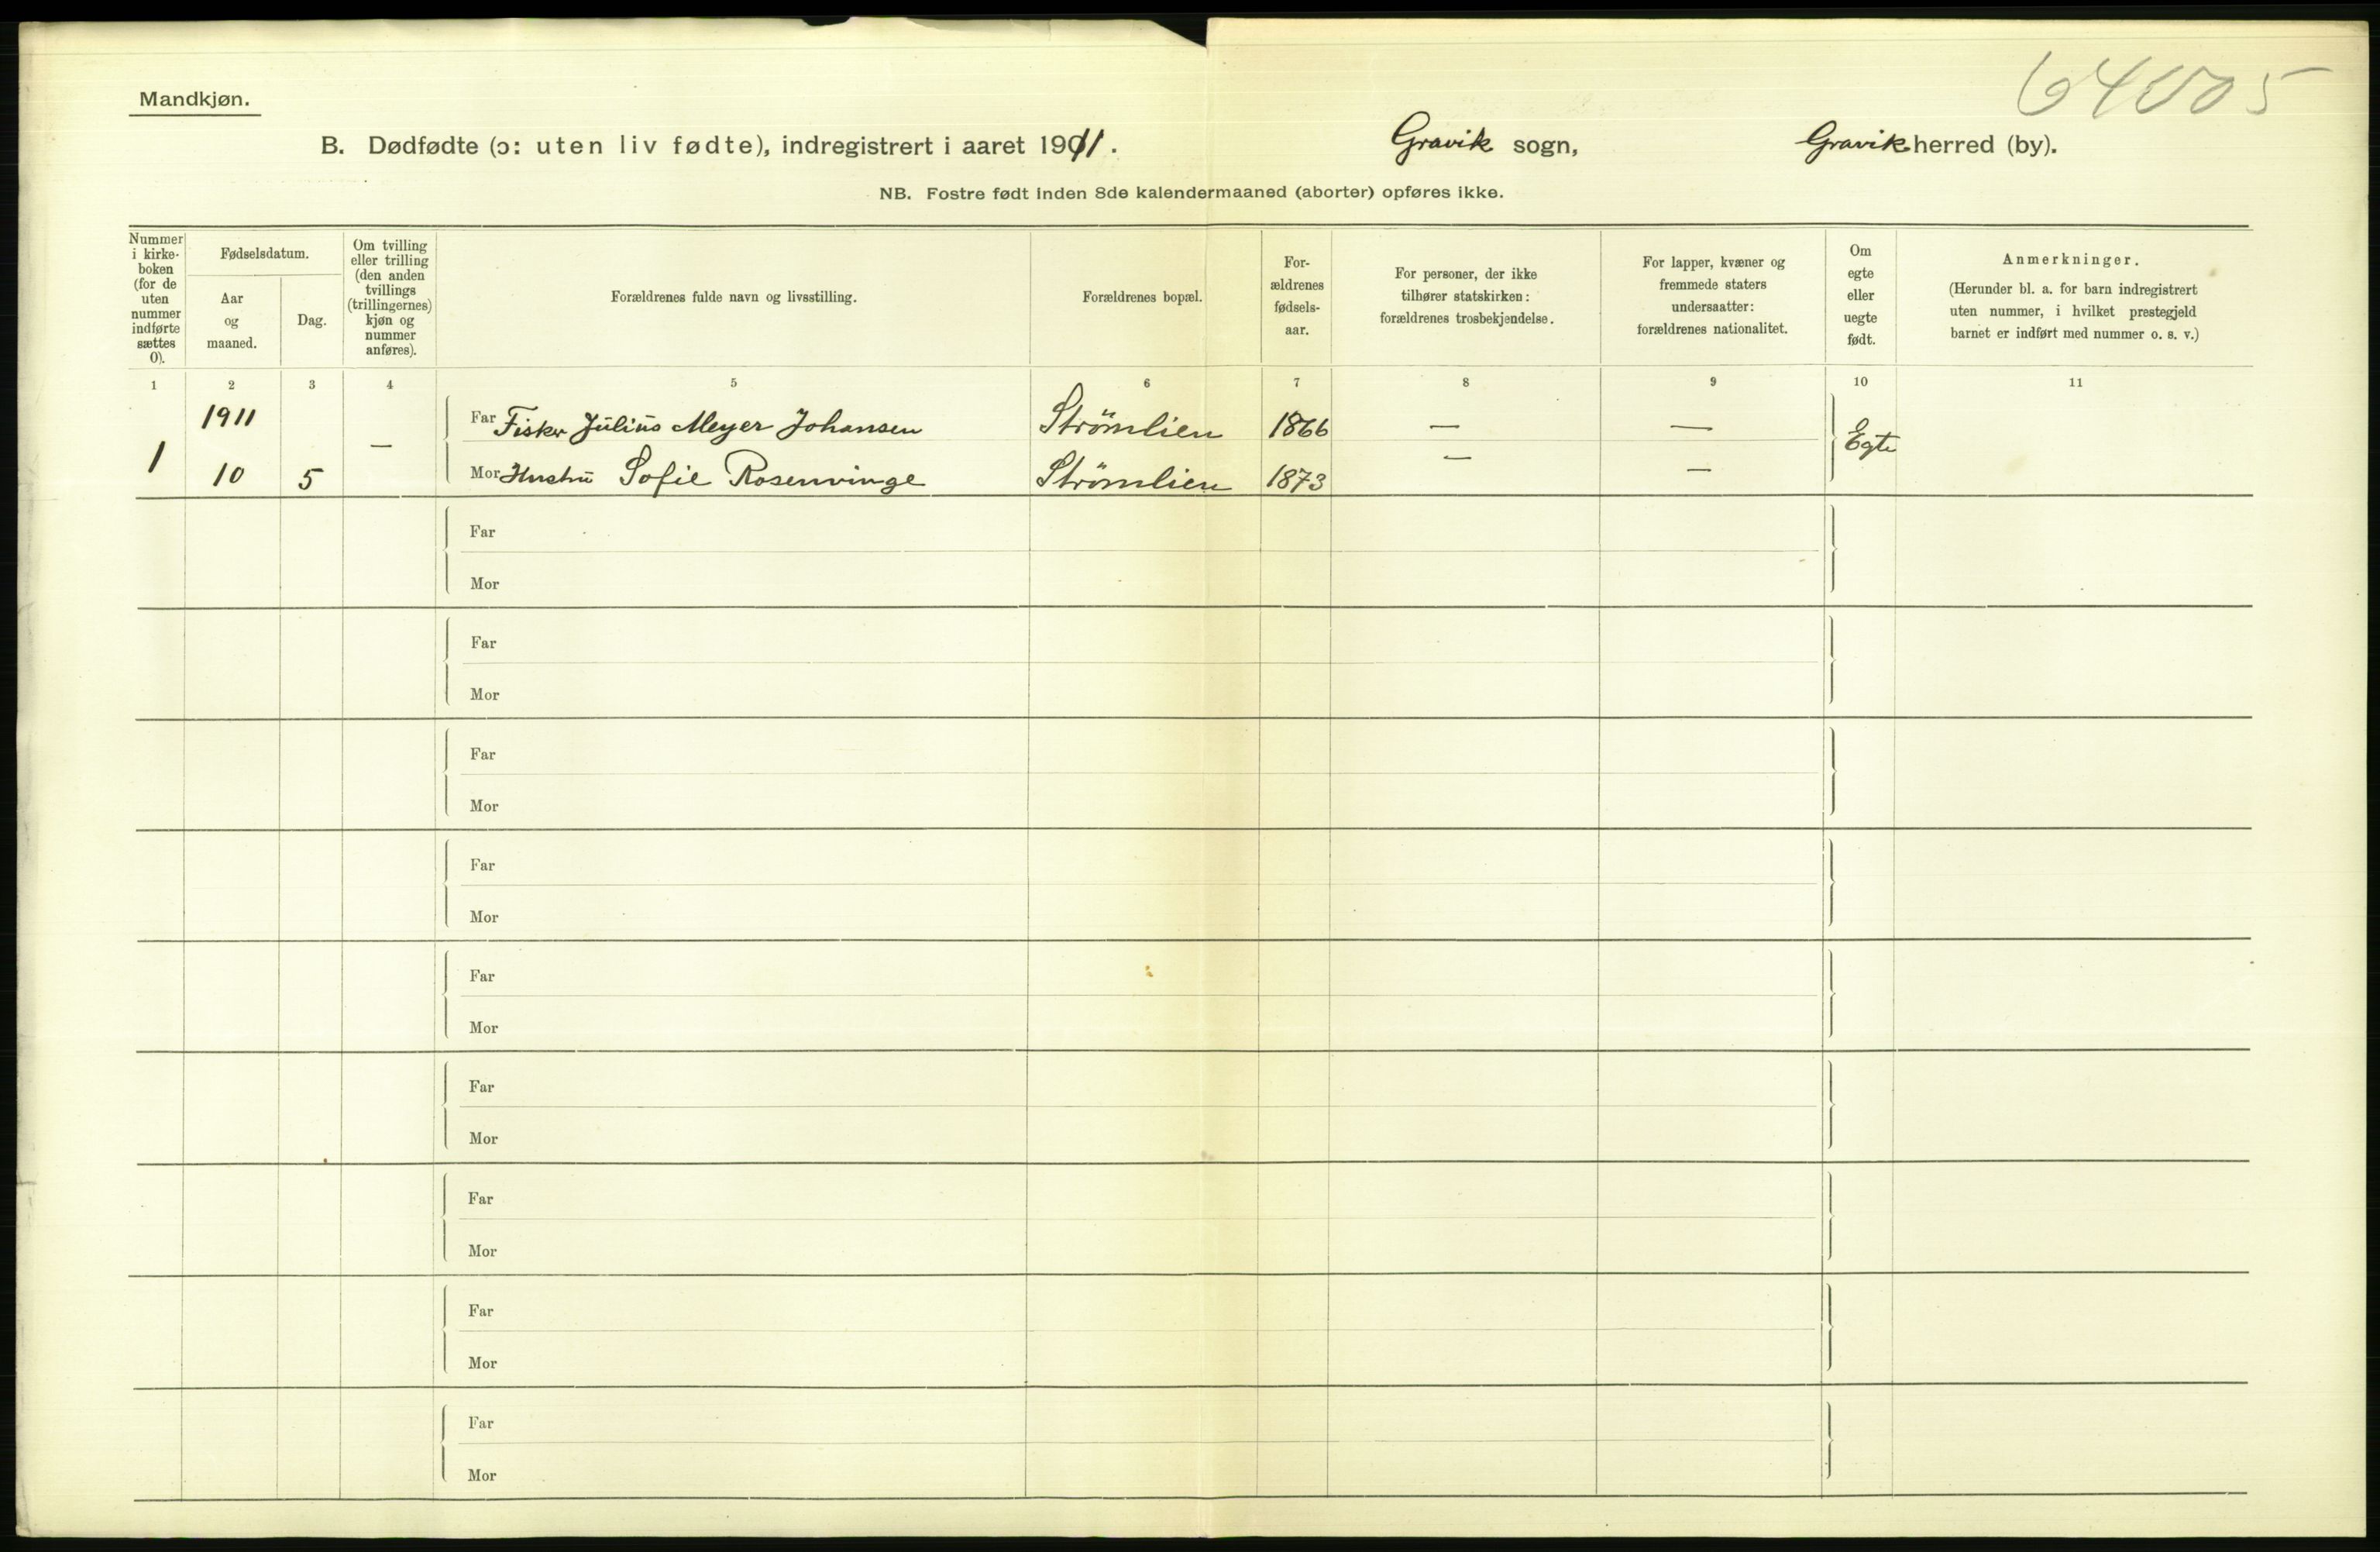 Mandkjøn.
B. Dødfødte (ɔ: uten liv fødte), indregistrert i aaret 1911. Gravik sogn, Gravik herred (by).
NB. Fostre født inden 8de kalendermaaned (aborter) opføres ikke.
Nummer
i kirke-
boken
(for de
uten
nummer
indførte
sættes
0).
Fødselsdatum.
Aar
og
maaned.
Dag.
Om tvilling
eller trilling
(den anden
tvillings
(trillingernes)
kjøn og
nummer
anføres).
Forældrenes fulde navn og livsstilling.
Forældrenes bopæl.
For-
ældrenes
fødsels-
aar.
For personer, der ikke
tilhører statskirken:
forældrenes trosbekjendelse.
For lapper, kvæner og
fremmede staters
undersaatter:
forældrenes nationalitet.
Om
egte
eller
uegte
født.
Anmerkninger.
(Herunder bl. a. for barn indregistrert
uten nummer, i hvilket prestegjeld
barnet er indført med nummer o. s. v.)
1 2 3 4 5 6 7 8 9 10 11
1911 Far Fisker Julius Meyer Johansen Strömlien 1866 — —
1 — Egte
10 5 Mor Hustru Sofie Rosenvinge Strömlien 1873 — —
Far
Mor
Far
Mor
Far
Mor
Far
Mor
Far
Mor
Far
Mor
Far
Mor
Far
Mor
Far
Mor